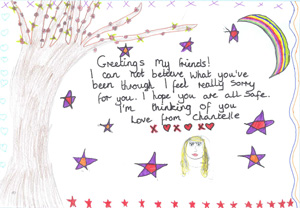 Greetings My friends!
I can not believe what you've
been through I feel really sorry
for you. I hope you are all safe.
I'm thinking of you
Love from Chantelle
x o x o x